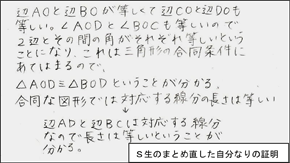 辺AOと辺BOが等しくて辺COと辺DOも
等しい。∠AODと∠BOCも等しいので
2辺とその間の角がそれぞれ等しいという
ことになり、これは三角形の合同条件に
あてはまるので、
△AOD≡△BODということが分かる。
合同な図形では対応する線分の長さは等しい
辺ADと辺BCは対応する線分
なので長さは等しいということが
分かる。
S生のまとめ直した自分なりの証明